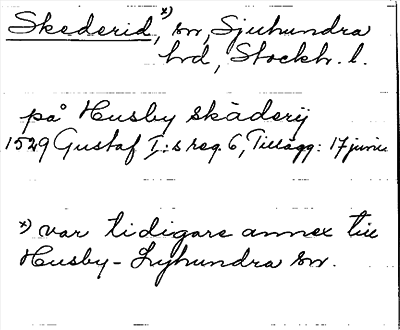 Skederid,ˣ⁾ sn, Sjuhundra
hd, Stockh. l.
på Husby skäderij
1529 Gustaf I:s reg. 6, Tillägg: 17 juni
x) var tidigare annex till
Husby-Lyhundra sn.